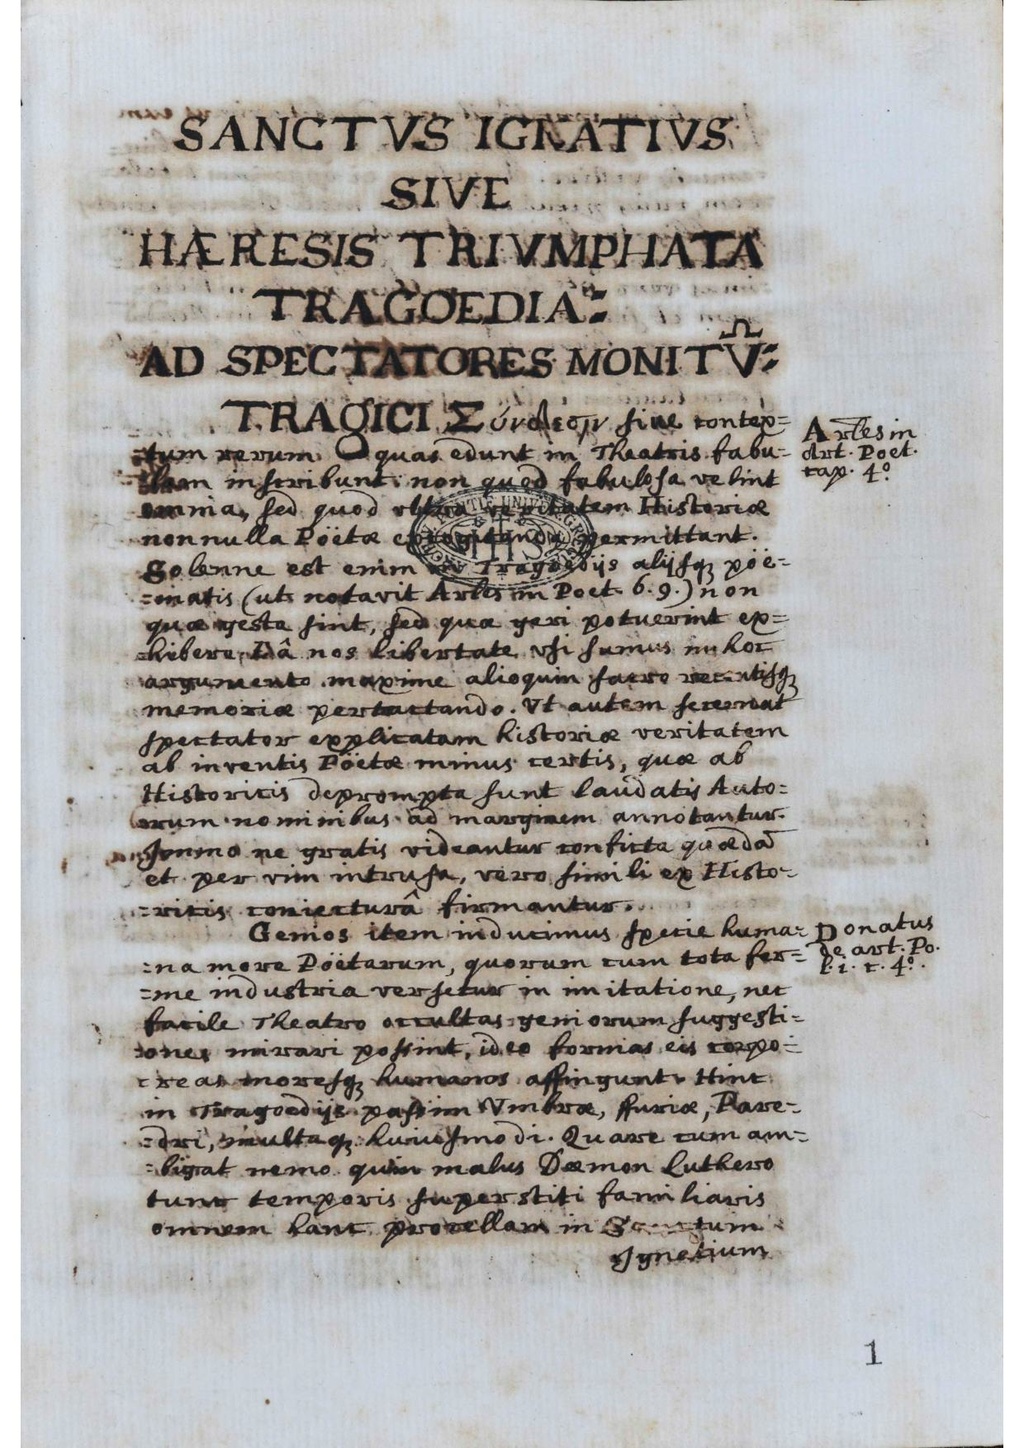 SANCTVS IGNATIVS
SIVE
HÆRESIS TRIVMPHATA
TRAGOEDIA:
AD SPECTATORES MONITV̑:
TRAGICI Σύνθεσιν siue contex=
tum rerum quas edunt in Theatris fabu-
lam inscribunt: non quod fabulosa velint
omnia, sed quod ultra veritatem Historiæ
nonnulla Pöetæ excogitanda permittant.
Solenne est enim in Tragoedijs alijsq; pöe-
=matis (ut notavit Artles in Poet. 6. 9.) non
quæ gesta sint, sed quæ geri potuerint ex=
hibere, Eâ nos libertate usi sumus in hoc
argumento maxime alioquin sacro recentisq;
memoriæ pertractando. Vt autem secernat
spectator explicatam historiæ veritatem
ab inventis Pöetæ minus certis, quæ ab
Historicis deprompta sunt laudatis Auto=
rum nominibus ad marginem annotantur.
Immo ne gratis videantur conficta quædã
et per vim intrusa, vero simili ex Histo-
=ricis coniecturâ firmantur.
Genios item inducimus specie huma=
=na more Pöetarum, quorum cum tota fer=
=me industria versetur in imitatione, nec
facile Theatro occultas geniorum suggesti-
ones mirari possint, ideo formas eis corpo-
reas moresq; humanos affingunt. Hinc
in Tragoedijs passim Vmbræ, ffuriæ, Pare-
=dri, multaq; huiusmodi. Quare cum am-
=bigat nemo quin malus Dæmon Luthero
tunc temporis superstiti familiaris
omnem hanc procellam in Sanctum
Ignatium
Artles in
Art. Poet.
cap. 4º.
Donatus
de art. Po.
l. 1. c. 4º.
IHS
1